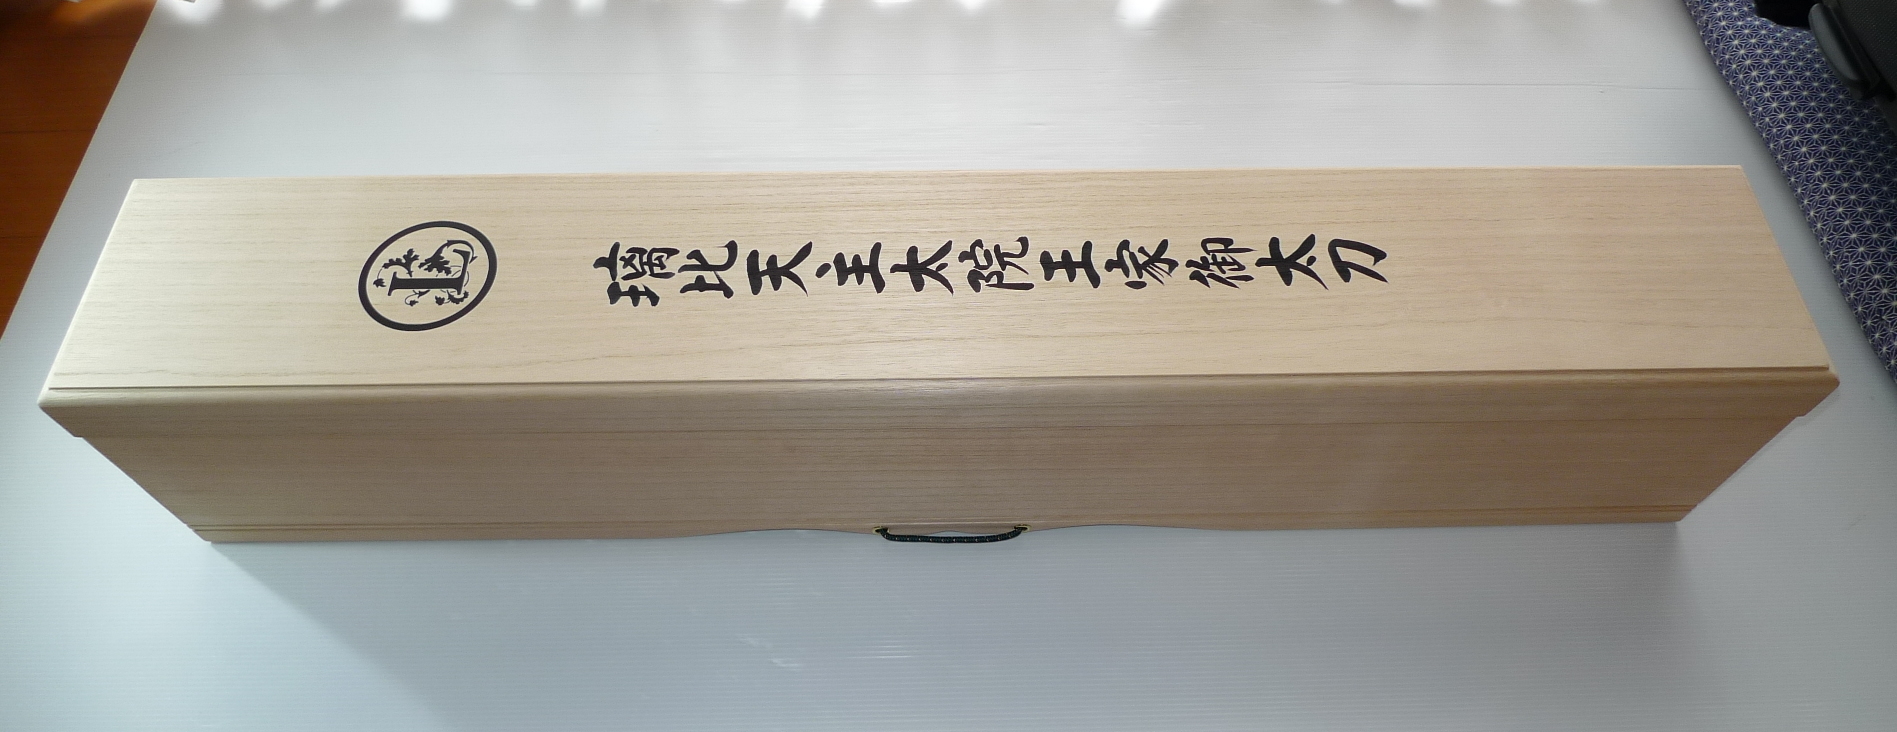 L
璃比天主太院王家御太刀